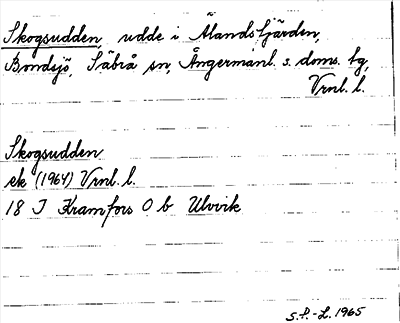 Skogsudden, udde i Ålandsfjärden,
Bondsjö, Säbrå sn, Ångermanl. s. doms. tg,
Vrnl. l.
Skogsudden
ek (1964) Vrnl. l.
18 I Kramfors O b Ulvvik
S.P.-L. 1965